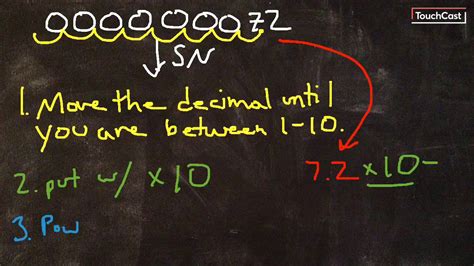 TouchCast
0000000072
↓ SN
1. Move the decimal until
you are between 1-10.
2. put w/ x10
7.2 x10-
3. Pow